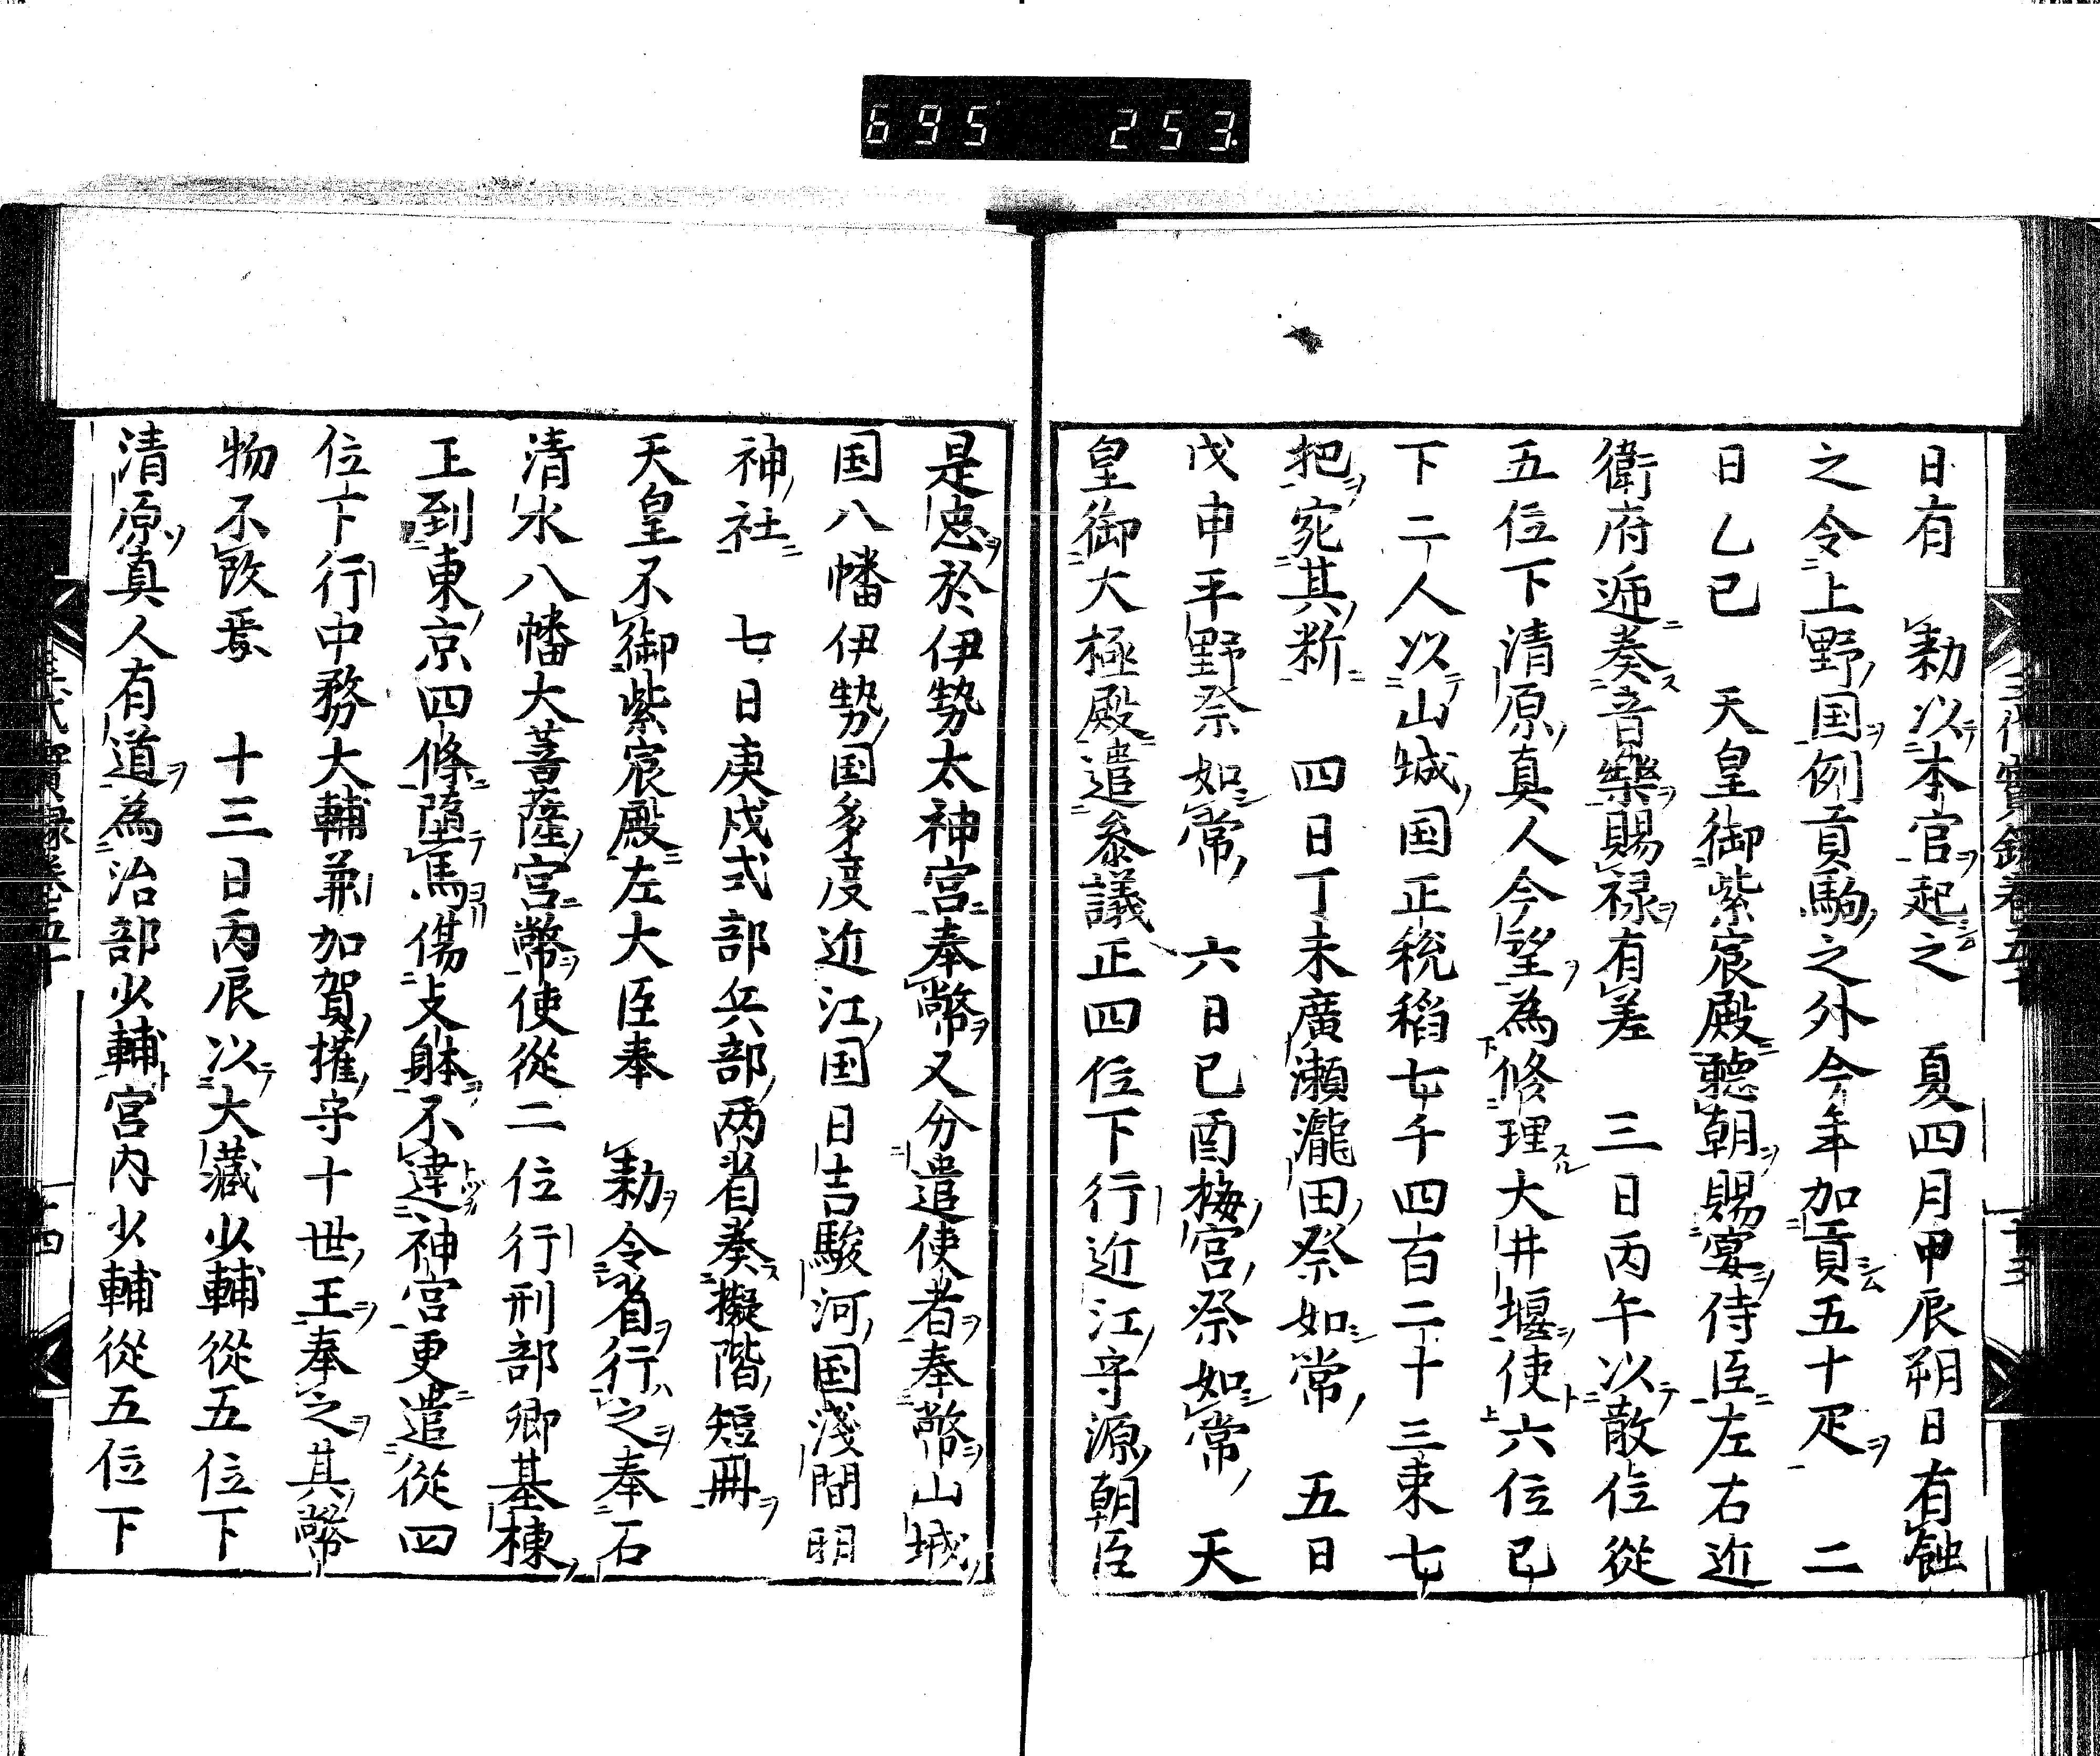 695 253
日有 勅以本官起之 夏四月甲辰朔日有蝕
之令上野国例貢駒之外今年加貢五十疋 二
日乙巳 天皇御紫宸殿聽朝賜宴侍臣左右近
衛府逓奏音樂賜禄有差 三日丙午以散位從
五位下清原真人今望為修理大井堰使六位已
下二人以山城国正税稻七千四百二十三束七
把宛其斷 四日丁未廣瀬瀧田祭如常 五日
戊申平野祭如常 六日己酉梅宮祭如常 天
皇御大極殿遣叅議正四位下行近江守源朝臣
是忠於伊勢太神宮奉幣又分遣使者奉幣山城
国八幡伊勢国多度近江国日吉駿河国淺間明
神社 七日庚戍式部兵部两省奏擬階短冊
天皇不御紫宸殿左大臣奉 勅令省行之奉石
清水八幡大菩薩宮幣使從二位行刑部卿基棟
王到東京四條墮馬傷支躰不達神宮更遣從四
位下行中務大輔兼加賀権守十世王奉之其幣
物不改焉 十三日丙辰以大藏少輔從五位下
清原真人有道為治部少輔宮内少輔從五位下